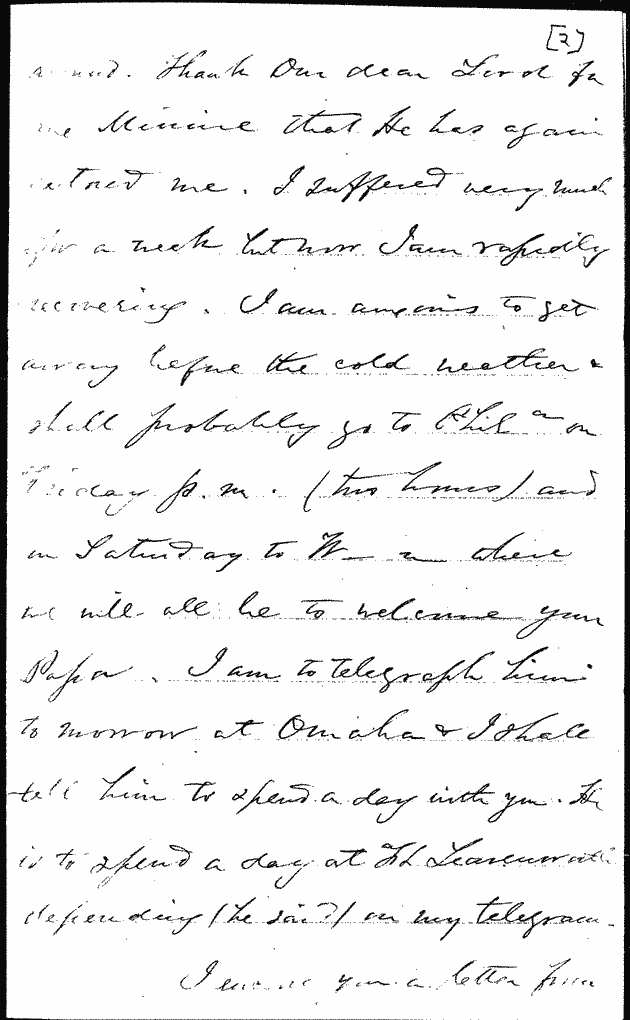 [2]
mend. Thank Our dear Lord for
me Minnie that He has again
restored me. I suffered very much
for a week but now I am rapidily
recovering. I am anxious to get
away before the cold weather &
shall probably go to Phila on
Friday p.m. (two hours) and
on Saturday to W—n where
we will all be to welcome your
Papa. I am to telegraph him
to morrow at Omaha & I shall
tell him to spend a day with you. He
is to spend a day at Ft Leavenworth
depending (he said) on my telegram.
I enclose you a letter from